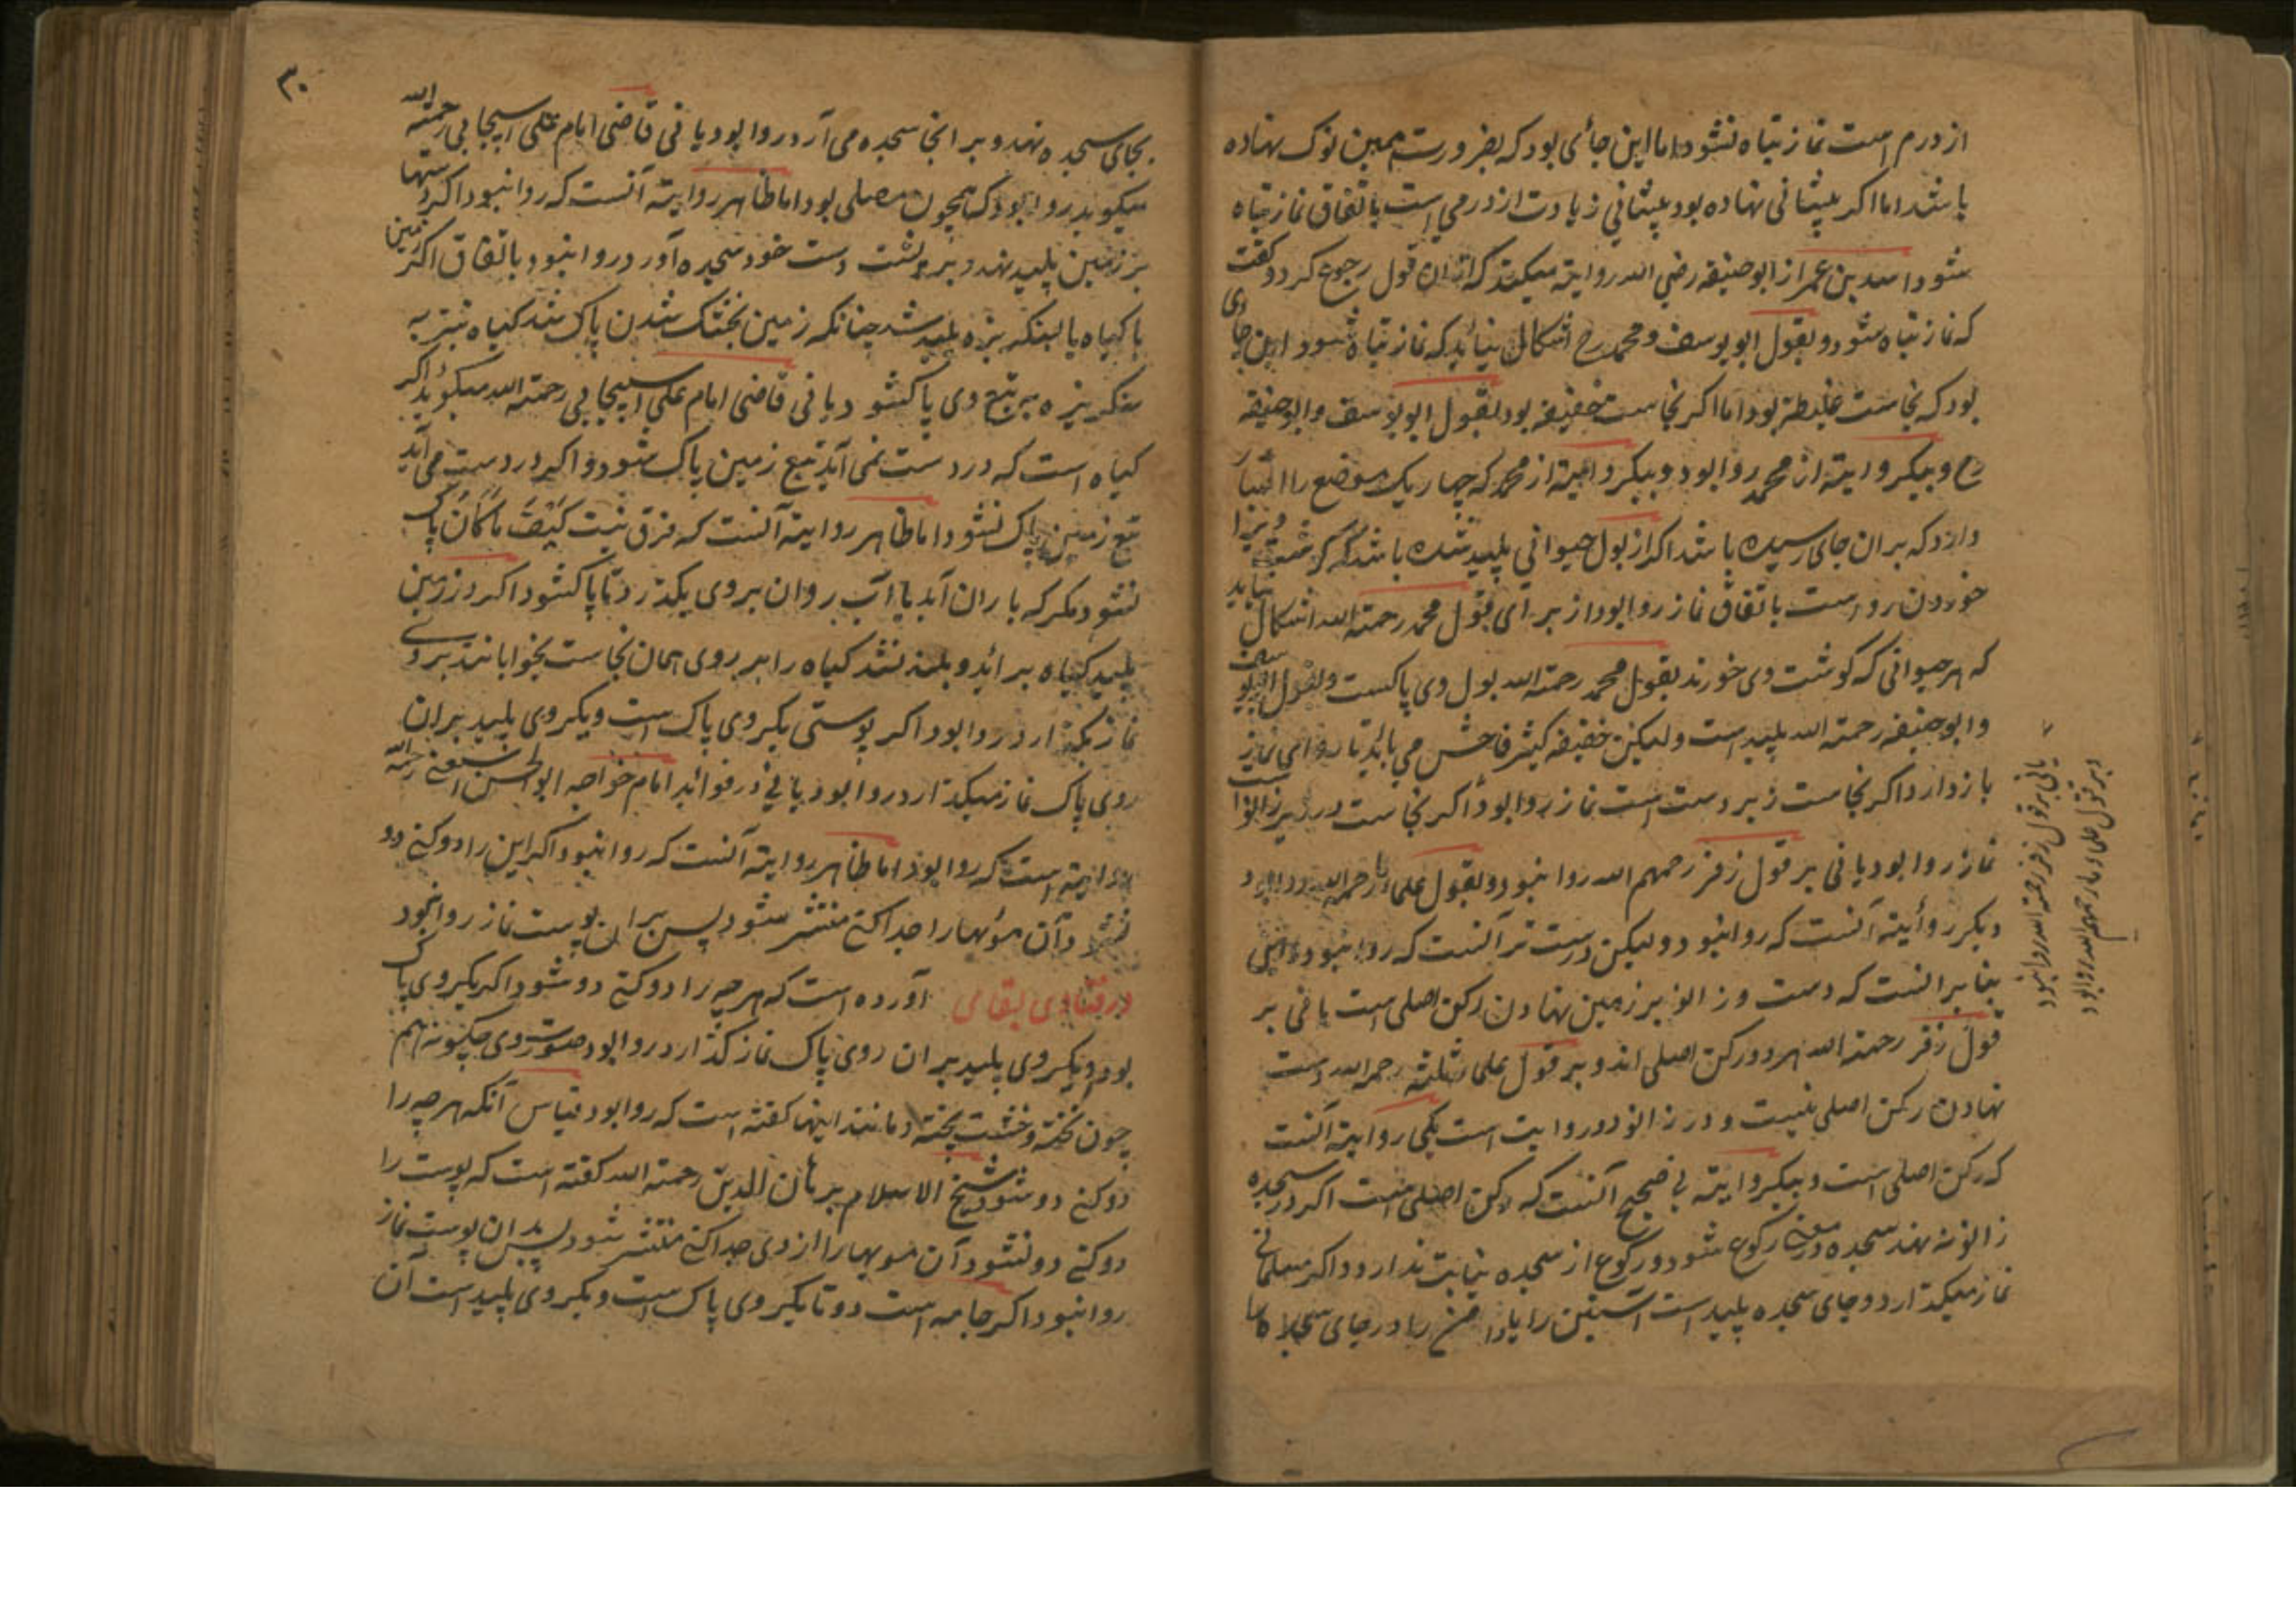 از درم است نماز تباه نشود اما این جائی بود که بضرورت همین نوک نهاده
باشد اما اگر پیشانی نهاده بود پیشانی زیادت از درمی است باتفاق نماز تباه
شود اسد بن عمر از ابوحنیفه رضی الله روایته میکند که از ان قول رجوع کرد و گفت
که نماز تباه شود و بقول ابویوسف و محمد رح اشکال نیاید که نماز تباه شود و این جای
بود که نجاست غلیظه بود اما اگر نجاست خفیفه بود بقول ابویوسف و ابوحنیفه
رح و بیکروایته از محمد روا بود و بیکروایته از محمد که چهار یک موضع را اعتبار
دارد که بران جای رسیده باشد اگر از بول حیوانی پلید شده باشد که گوشت ویرا
خوردن روا است باتفاق نماز روا بود از برای قول محمد رحمته الله اشکال نیاید
که هر حیوانی که گوشت وی خورند بقول محمد رحمته الله بول وی پاکست و بقول ابویوسف
و ابوحنیفه رحمته الله پلید است ولیکن خفیفه کثیر فاحش می باید تا روای نماز
باز دارد اگر نجاست زیر دست است نماز روا بود و اگر نجاست در زیر زانو است
نماز روا بود یا فی بر قول زفر رحمهم الله روا نبود و بقول علما ما رحمهم الله روا بود و
دیگر روایته آنست که روا نبود ولیکن درست تر آنست که روا نبود
بنابر انست که دست و زانو بر زمین نهادن رکن اصلی است یا فی بر
قول زفر رحمته الله هر دو رکن اصلی اند و بر قول علما ثلثه رحمهم الله دست
نهادن رکن اصلی نیست و در زانو دو روایت است یکی روایته آنست
که رکن اصلی است و بیکروایته فی صحیح آنست که رکن اصلی نیست اگر در سجده
زانو نه نهد سجده در معنی رکوع شود و رکوع از سجده نیابت ندارد و اگر مسلمانی
نماز میگذارد و جای سجده پلید است آستین را یا دامن را در جای سجده
یا فی بر قول زفر رحمته الله روا نبود
و بر قول علماء ما رحمهم الله روا بود
۳۰
بجای سجده نهد و بر انجا سجده می آرد روا بود یا فی قاضی امام علی اسبیجابی رحمته الله
میگوید روا بود که همچون مصلی بود اما ظاهر روایته آنست که روا نبود اگر دستها
بر زمین پلید نهد و بر پشت دست خود سجده آورد روا نبود باتفاق اگر زمین
با گیاه یا سنگ ریزه پلید شد چنانکه زمین بخشک شدن پاک شد گیاه نیز به
سنگ ریزه به تبع وی پاک شود یا فی قاضی امام علی اسبیجابی رحمته الله میگوید اگر
گیاه است که در دست نمی آید تبع زمین پاک شود و اگر در دست می آید
تبع زمین پاک نشود اما ظاهر روایته آنست که فرق نیست کیف ما کان پاک
نشود مگر که باران آید یا آب روان بر وی بگذرد تا پاک شود اگر در زمین
پلید گیاه برآید و بلند شد گیاه را بر روی همان نجاست بخوابانند بر وی
نماز بگذارد روا بود اگر پوستی یکروی پاک است و یکروی پلید بران
روی پاک نماز میگذارد روا بود یا فی در فوائد امام خواجه ابوالحسن رحمه الله
روایته است که روا بود اما ظاهر روایته آنست که روا نبود اگر این را دو کنی دو
نشود و آن مویها را جدا کنی منتشر شود پس بران پوست نماز روا نبود
در فتاوی بقالی آورده است که هر چه را دو کنی دو شود اگر یکروی پاک
بود و یکروی پلید بران روی پاک نماز گذارد روا بود صورت وی چگونه هم
چون تخته و خشت پخته و مانند اینها گفته است که روا بود قیاس آنکه هر چه را
دو کنی دو شود شیخ الاسلام برهان الدین رحمته الله گفته است که پوست را
دو کنی دو نشود آن مویها را از وی جدا کنی منتشر شود پس بران پوست نماز
روا نبود اگر جامه است دو تا یکروی پاک است و یکروی پلید است آن